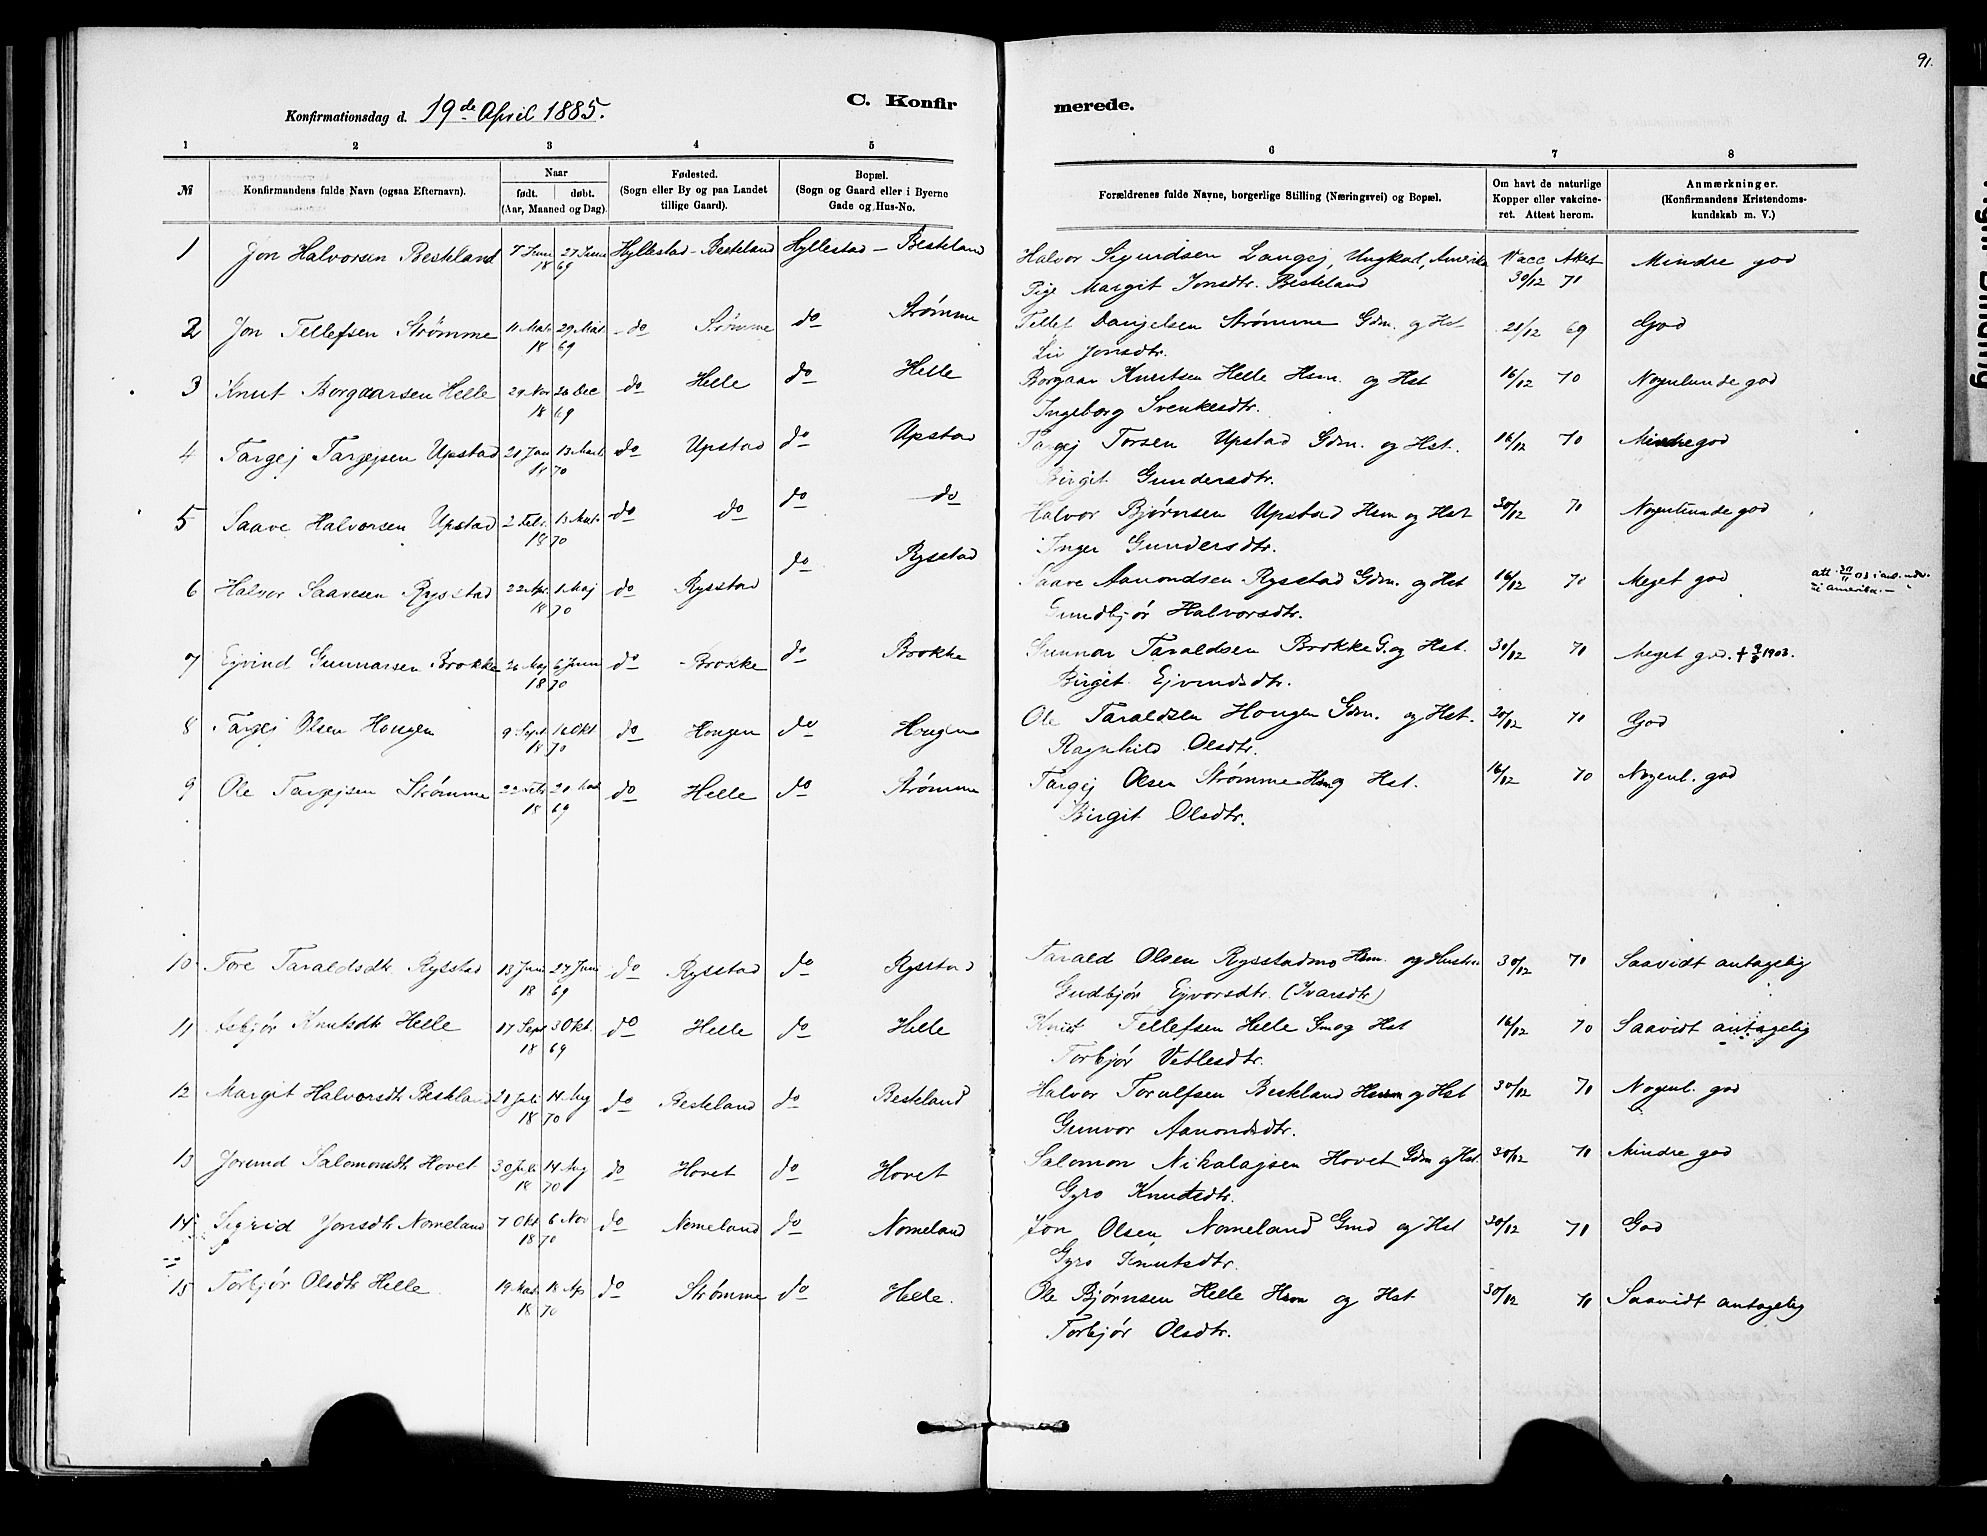 91.
C. Konfirmerede.
Konfirmationsdag d. 19de April 1885.
1 2 3 4 5 6 7 8
№ Konfirmandens fulde Navn (ogsaa Efternavn). Naar født. døbt. (Aar, Maaned og Dag). Fødested. (Sogn eller By og paa Landet tillige Gaard). Bopæl. (Sogn og Gaard eller i Byerne Gade og Hus-No. Forældrenes fulde Navne, borgerlige Stilling (Næringsvei) og Bopæl. Om havt de naturlige Kopper eller vakcineret. Attest herom. Anmærkninger. (Konfirmandens Kristendomskundskab m. V.)
1 Jon Halvorsen Besteland 7 Juni 27 Juni 18 69 Hyllestad - Besteland Hyllestad - Besteland Halvor Sigurdsen Langej, Ungkarl, Amerika Vacc Atest Mindre god
Pige Margit Jonsdtr. Besteland 30/12 70
2 Jon Tellefsen Strømme 11 Mai 29 Mai 18 69 do Strømme do Strømme Tellef Danjelsen Strømme Gdm. og Hst 21/12 69 God
Liv Jonsdtr.
3 Knut Borgaarsen Helle 29 Nov 26 Dec 18 69 do Helle do Helle Borgaar Knutsen Helle Hsm. og Hst 16/12 70 Nogenlunde god
Ingeborg Svenkesdtr.
4 Targej Targejsen Upstad 21 Jan 13 Mart 18 70 do Upstad do Upstad Targej Torsen Upstad Gdm. og Hst. 16/12 70 Mindre god
Birgit Gundersdtr.
5 Saave Halvorsen Upstad 2 Feb. 13 Mart 18 70 do do do do Halvor Bjørnsen Upstad Hsm og Hst 30/12 70 Nogenlunde god
Inger Gundersdtr.
6 Halvor Saavesen Rysstad 22 Apr. 1 Maj 18 70 do Rysstad do Rysstad Saave Aanondsen Rysstad Gdm. og Hst 16/12 70 Meget god att. 30/11 03
til amerika.-
Gundbjør Halvorsdtr.
7 Ejvind Gunnarsen Brokke 20 Maj 6 Juni 18 70 do Brokke do Brokke Gunnar Taraldsen Brokke G. og Hst. 30/12 70 Meget god. † 1903.
Birgit Ejvindsdtr.
8 Targej Olsen Hougen 9 Sept 16 Okt 18 70 do Hougen do Hougen Ole Taraldsen Hougen Gdm. og Hst. 30/12 70 God
Ragnhild Olsdtr.
9 Ole Targejsen Strømme 22 Feb. 18 69 do Helle do Strømme Targej Olsen Strømme Hsm og Hst. 16/12 70 Nogenl. god
Birgit Olsdtr.
10 Tore Taraldsdtr Rysstad 13 Juni 27 Juni 18 69 do Rysstad do Rysstad Tarald Olsen Rysstadmo Hsm. og Hustru 30/12 70 Saavidt antagelig
Gudbjør Ejvorsdtr. (Ivarsdtr)
11 Asbjør Knutsdtr Helle 17 Sept 3 Okt. 18 69 do Helle do Helle Knut Tellefsen Helle Gm og Hst 16/12 70 Saavidt antagelig
Torbjør Vetlesdtr.
12 Margit Halvorsdtr Besteland 21 Juli 14 Aug 18 70 do Besteland do Besteland Halvor Torulfsen Besteland Husm og Hst 30/12 70 Nogenl. god
Gunvor Aanondsdtr.
13 Jorund Salomonsdtr Hovet 30 Juli 14 Aug 18 70 do Hovet do Hovet Salomon Nikolajsen Hovet Gdm og Hst. 30/12 70 Mindre god
Gyro Knutsdtr.
14 Sigrid Jonsdtr Nomeland 7 Okt 6 Nov 18 70 do Nomeland do Nomeland Jon Olsen Nomeland Gmd og Hst 30/12 70 God
Gyro Knutsdtr.
15 Torbjør Olsdtr Helle 19 Mart 18 Apr 18 70 do Strømme do Helle. Ole Bjørnsen Helle Hsm og Hst 30/12 70 Saavidt antagelig
Torbjør Olsdtr.